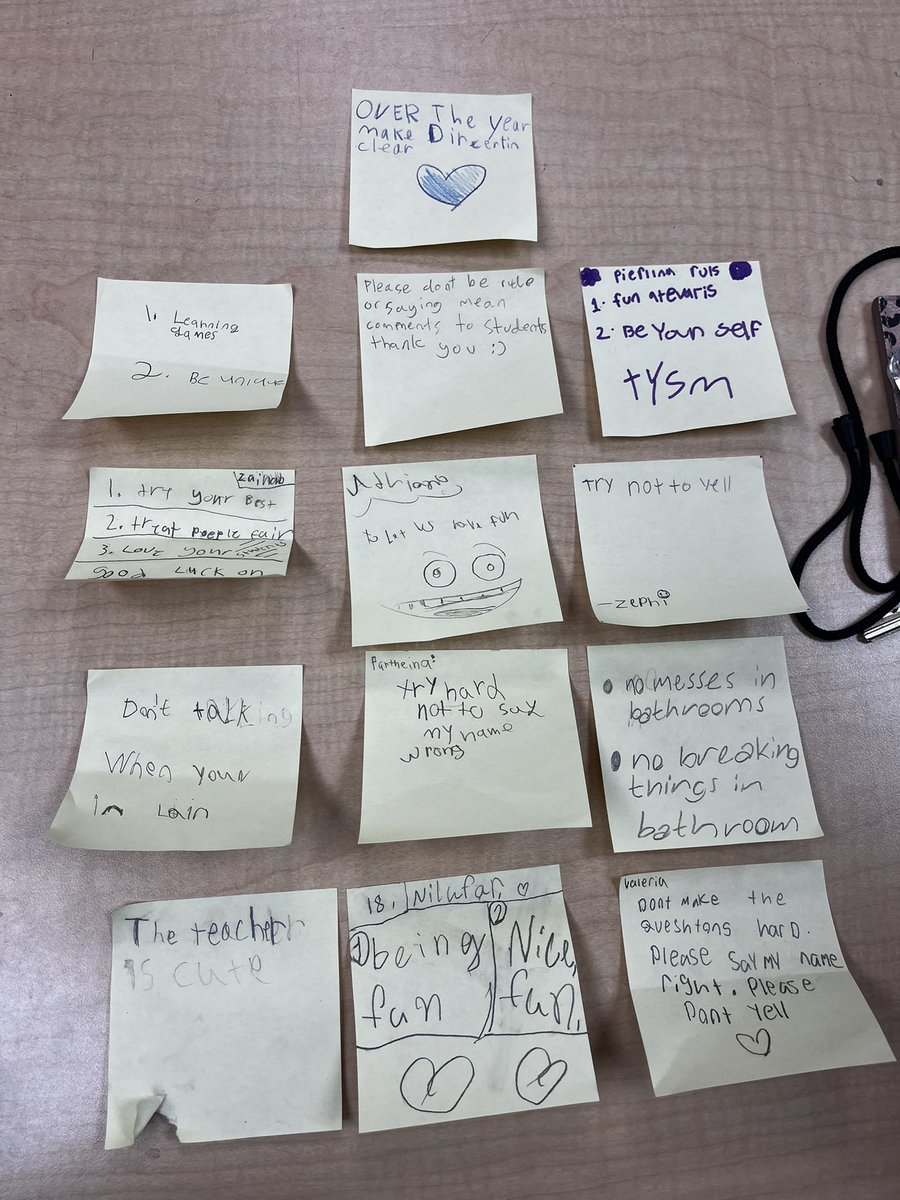 OVER The year
make Dircertin
clear
1. Learning
games
2. BE unique
Please dont be rude
or saying mean
comments to students
thank you :)
ruls
1. fun
2. Be Your self
tysm
zainab
1. try your Best
2. treat people fair
3. Love your
good Luck on
to Let us have fun
Try not to yell
-zephi
Don't talking
When your
in Lain
Partheina:
try hard
not to say
my name
wrong
no messes in
bathrooms
no breaking
things in
bathroom
The teacher
is cute
18. Nilufar
1 being
fun
2 Nice,
fun,
Valeria
Dont make the
queshtons hard.
Please say my name
right. Please
Dont yell